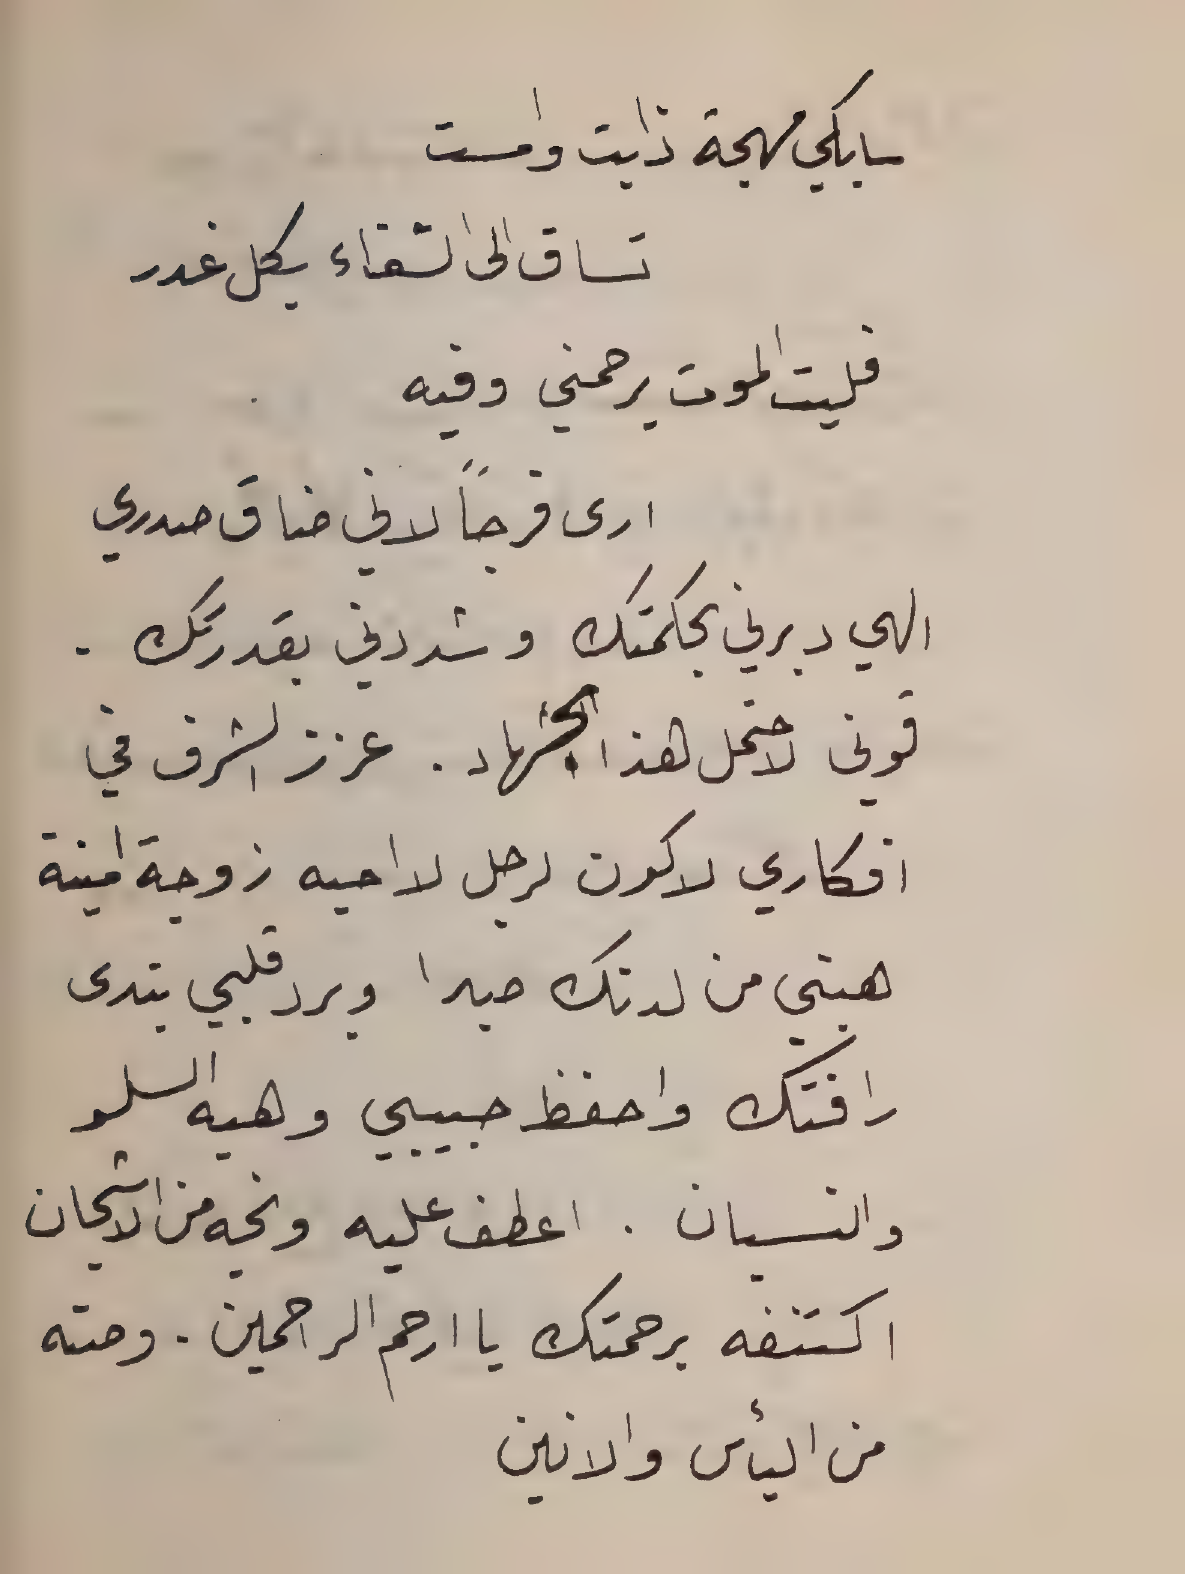 سابكي مهجة ذابت وامست
تساق الى الشقاء بكل غدر
فليت الموت يرحمني وفيه
ارى فرجاً لاني ضاق صدري
الهي دبرني بحكمتك وشددني بقدرتك .
قوني لاحتمل هذا الجهاد . عزز الشرف في
افكاري لاكون لرجل لا احبه زوجة امينة
هبني من لدنك صبرا وبرد قلبي بندى
رافتك واحفظ حبيبي وهبه السلو
والنسيان . اعطف عليه ونجه من الاشجان
اكتنفه برحمتك يا ارحم الراحمين . وصنه
من اليأس والانين